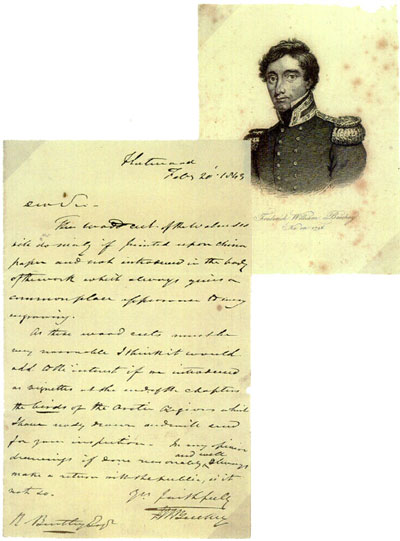 Frederick William Beechey
Fleetwood
Feby 20 1843
Sir
The wood cut of the Walrus
will do nicely if printed upon China
paper and not introduced in the body
of the work which always gives a
common place appearance to any
engraving.
As these wood cuts must be
very reasonable I think it would
add to the interest if we introduced
as vignettes at the end of the chapters
the birds of the Arctic Regions which
I have ready drawn and will send
for your inspection. In my opinion
drawings if done reasonably and well always
make a return with the public, is it
not so.
Yrs faithfully
FW Beechey
R Bentley Esqr